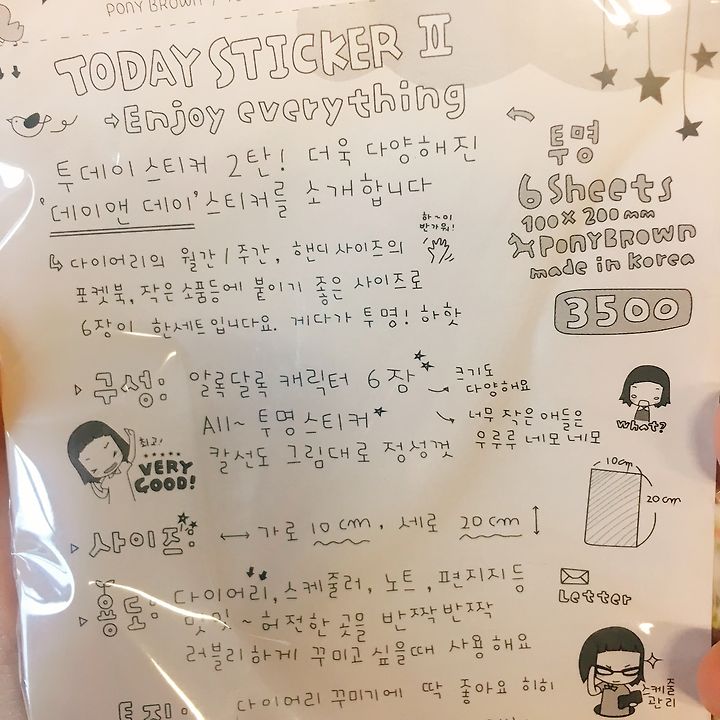 PONY BROWN
TODAY STICKER II
Enjoy everything
투데이 스티커 2탄! 더욱 다양해진
'데이앤 데이' 스티커를 소개합니다
투명
6 Sheets
100 x 200 mm
PONYBROWN
made in Korea
3500
하~이
반가워!
다이어리의 월간/주간, 핸디사이즈의
포켓북, 작은 소품등에 붙이기 좋은 사이즈로
6장이 한세트입니다요. 게다가 투명! 하핫
구성: 알록달록 캐릭터 6장
크기도
다양해요
All~ 투명스티커
너무 작은 애들은
우루루 네모 네모
칼선도 그림대로 정성껏
최고!
VERY
GOOD!
what?
10cm
20cm
사이즈: 가로 10cm, 세로 20cm
용도: 다이어리, 스케줄러, 노트, 편지지 등
밋밋~ 허전한 곳을 반짝반짝
러블리하게 꾸미고 싶을때 사용해요
Letter
스케줄
관리
다이어리 꾸미기에 딱 좋아요 히히